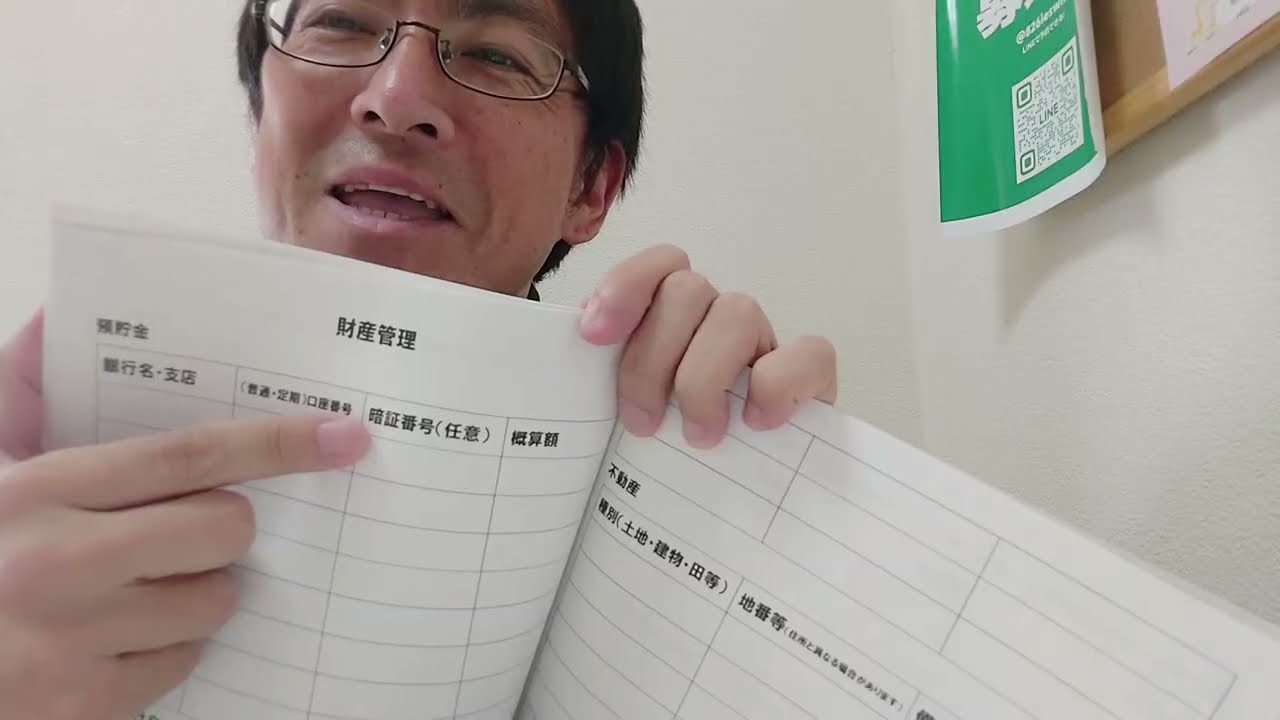 財産管理
預貯金
銀行名・支店
(普通・定期)口座番号
暗証番号(任意)
概算額
不動産
種別(土地・建物・田等)
地番等(住所と異なる場合があります)
LINE